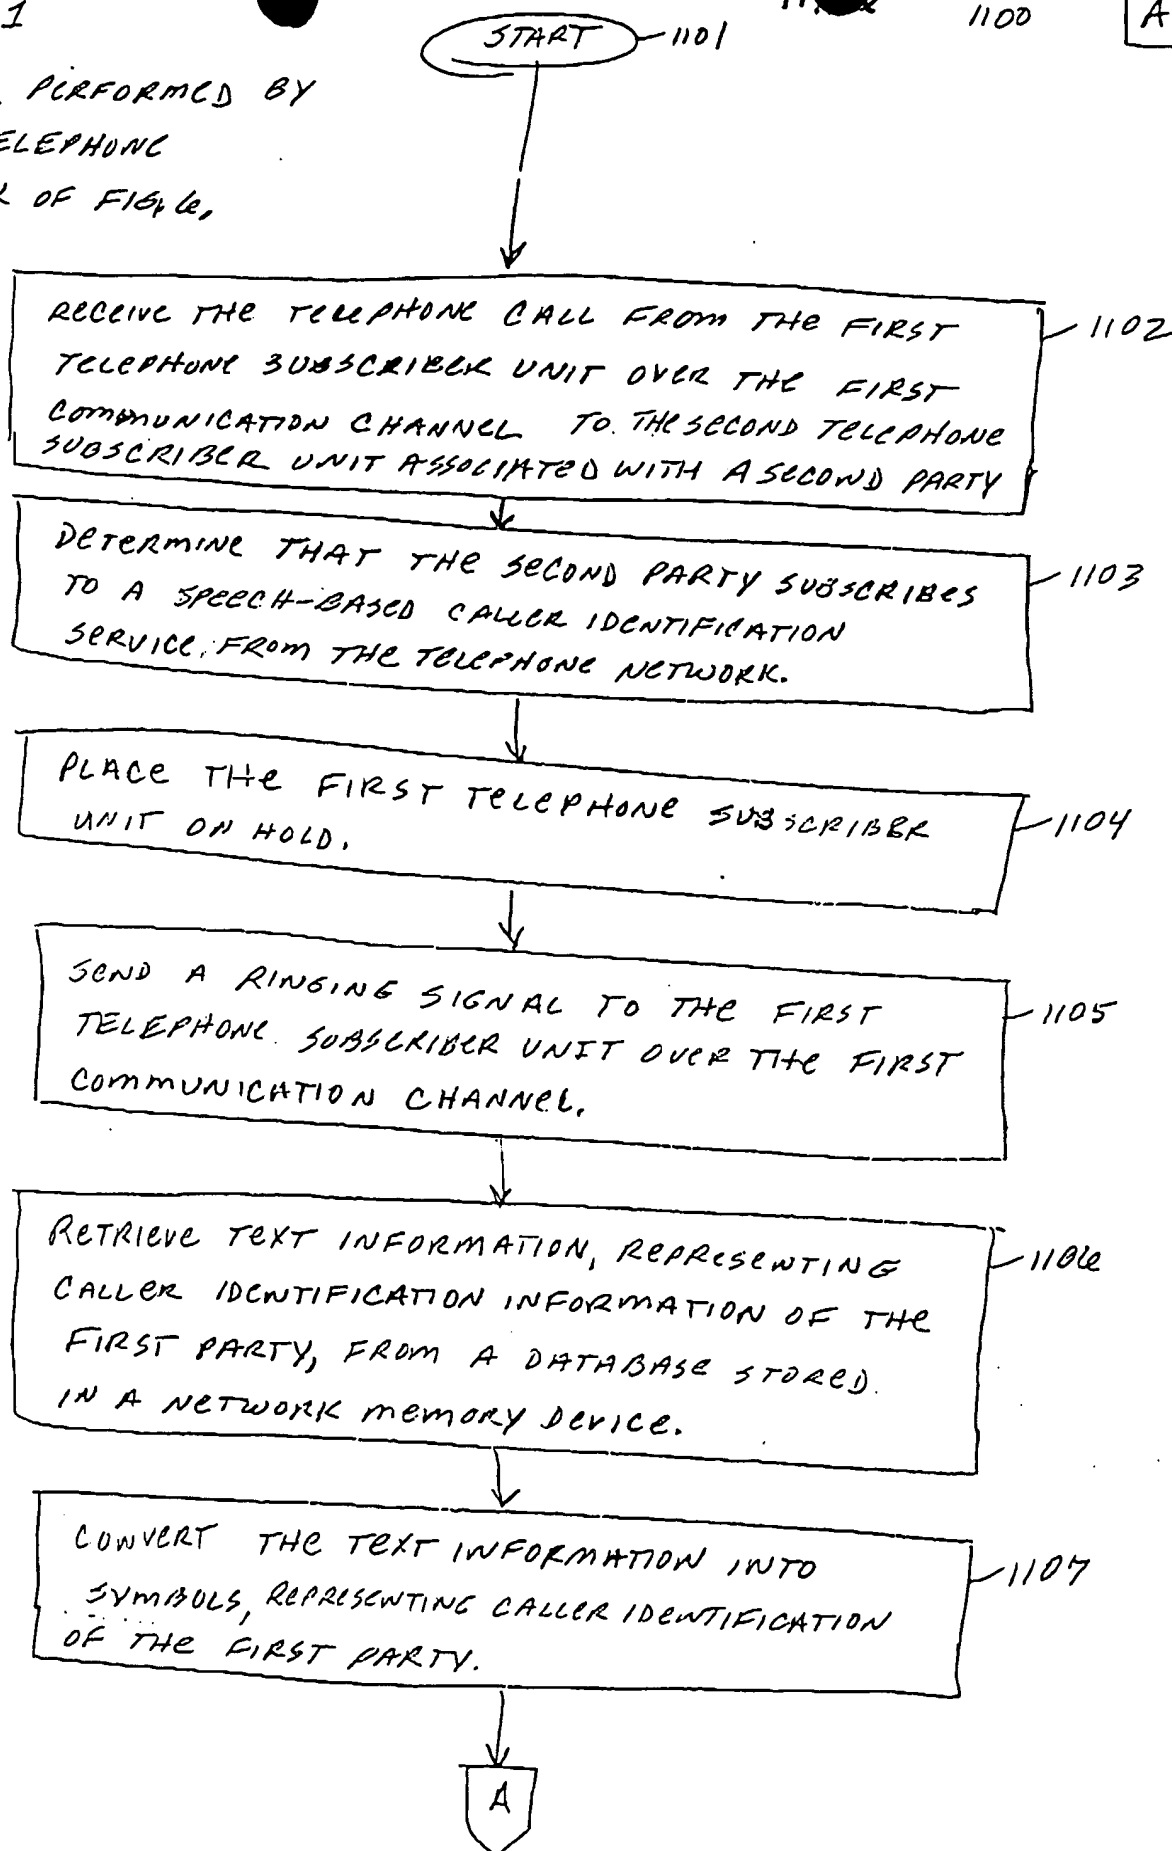 1
START
1101
1100
A
PERFORMED BY
TELEPHONE
OF FIG. 6.
RECEIVE THE TELEPHONE CALL FROM THE FIRST
TELEPHONE SUBSCRIBER UNIT OVER THE FIRST
COMMUNICATION CHANNEL TO THE SECOND TELEPHONE
SUBSCRIBER UNIT ASSOCIATED WITH A SECOND PARTY
1102
DETERMINE THAT THE SECOND PARTY SUBSCRIBES
TO A SPEECH-BASED CALLER IDENTIFICATION
SERVICE FROM THE TELEPHONE NETWORK.
1103
PLACE THE FIRST TELEPHONE SUBSCRIBER
UNIT ON HOLD.
1104
SEND A RINGING SIGNAL TO THE FIRST
TELEPHONE SUBSCRIBER UNIT OVER THE FIRST
COMMUNICATION CHANNEL.
1105
RETRIEVE TEXT INFORMATION, REPRESENTING
CALLER IDENTIFICATION INFORMATION OF THE
FIRST PARTY, FROM A DATABASE STORED
IN A NETWORK MEMORY DEVICE.
1106
CONVERT THE TEXT INFORMATION INTO
SYMBOLS, REPRESENTING CALLER IDENTIFICATION
OF THE FIRST PARTY.
1107
A